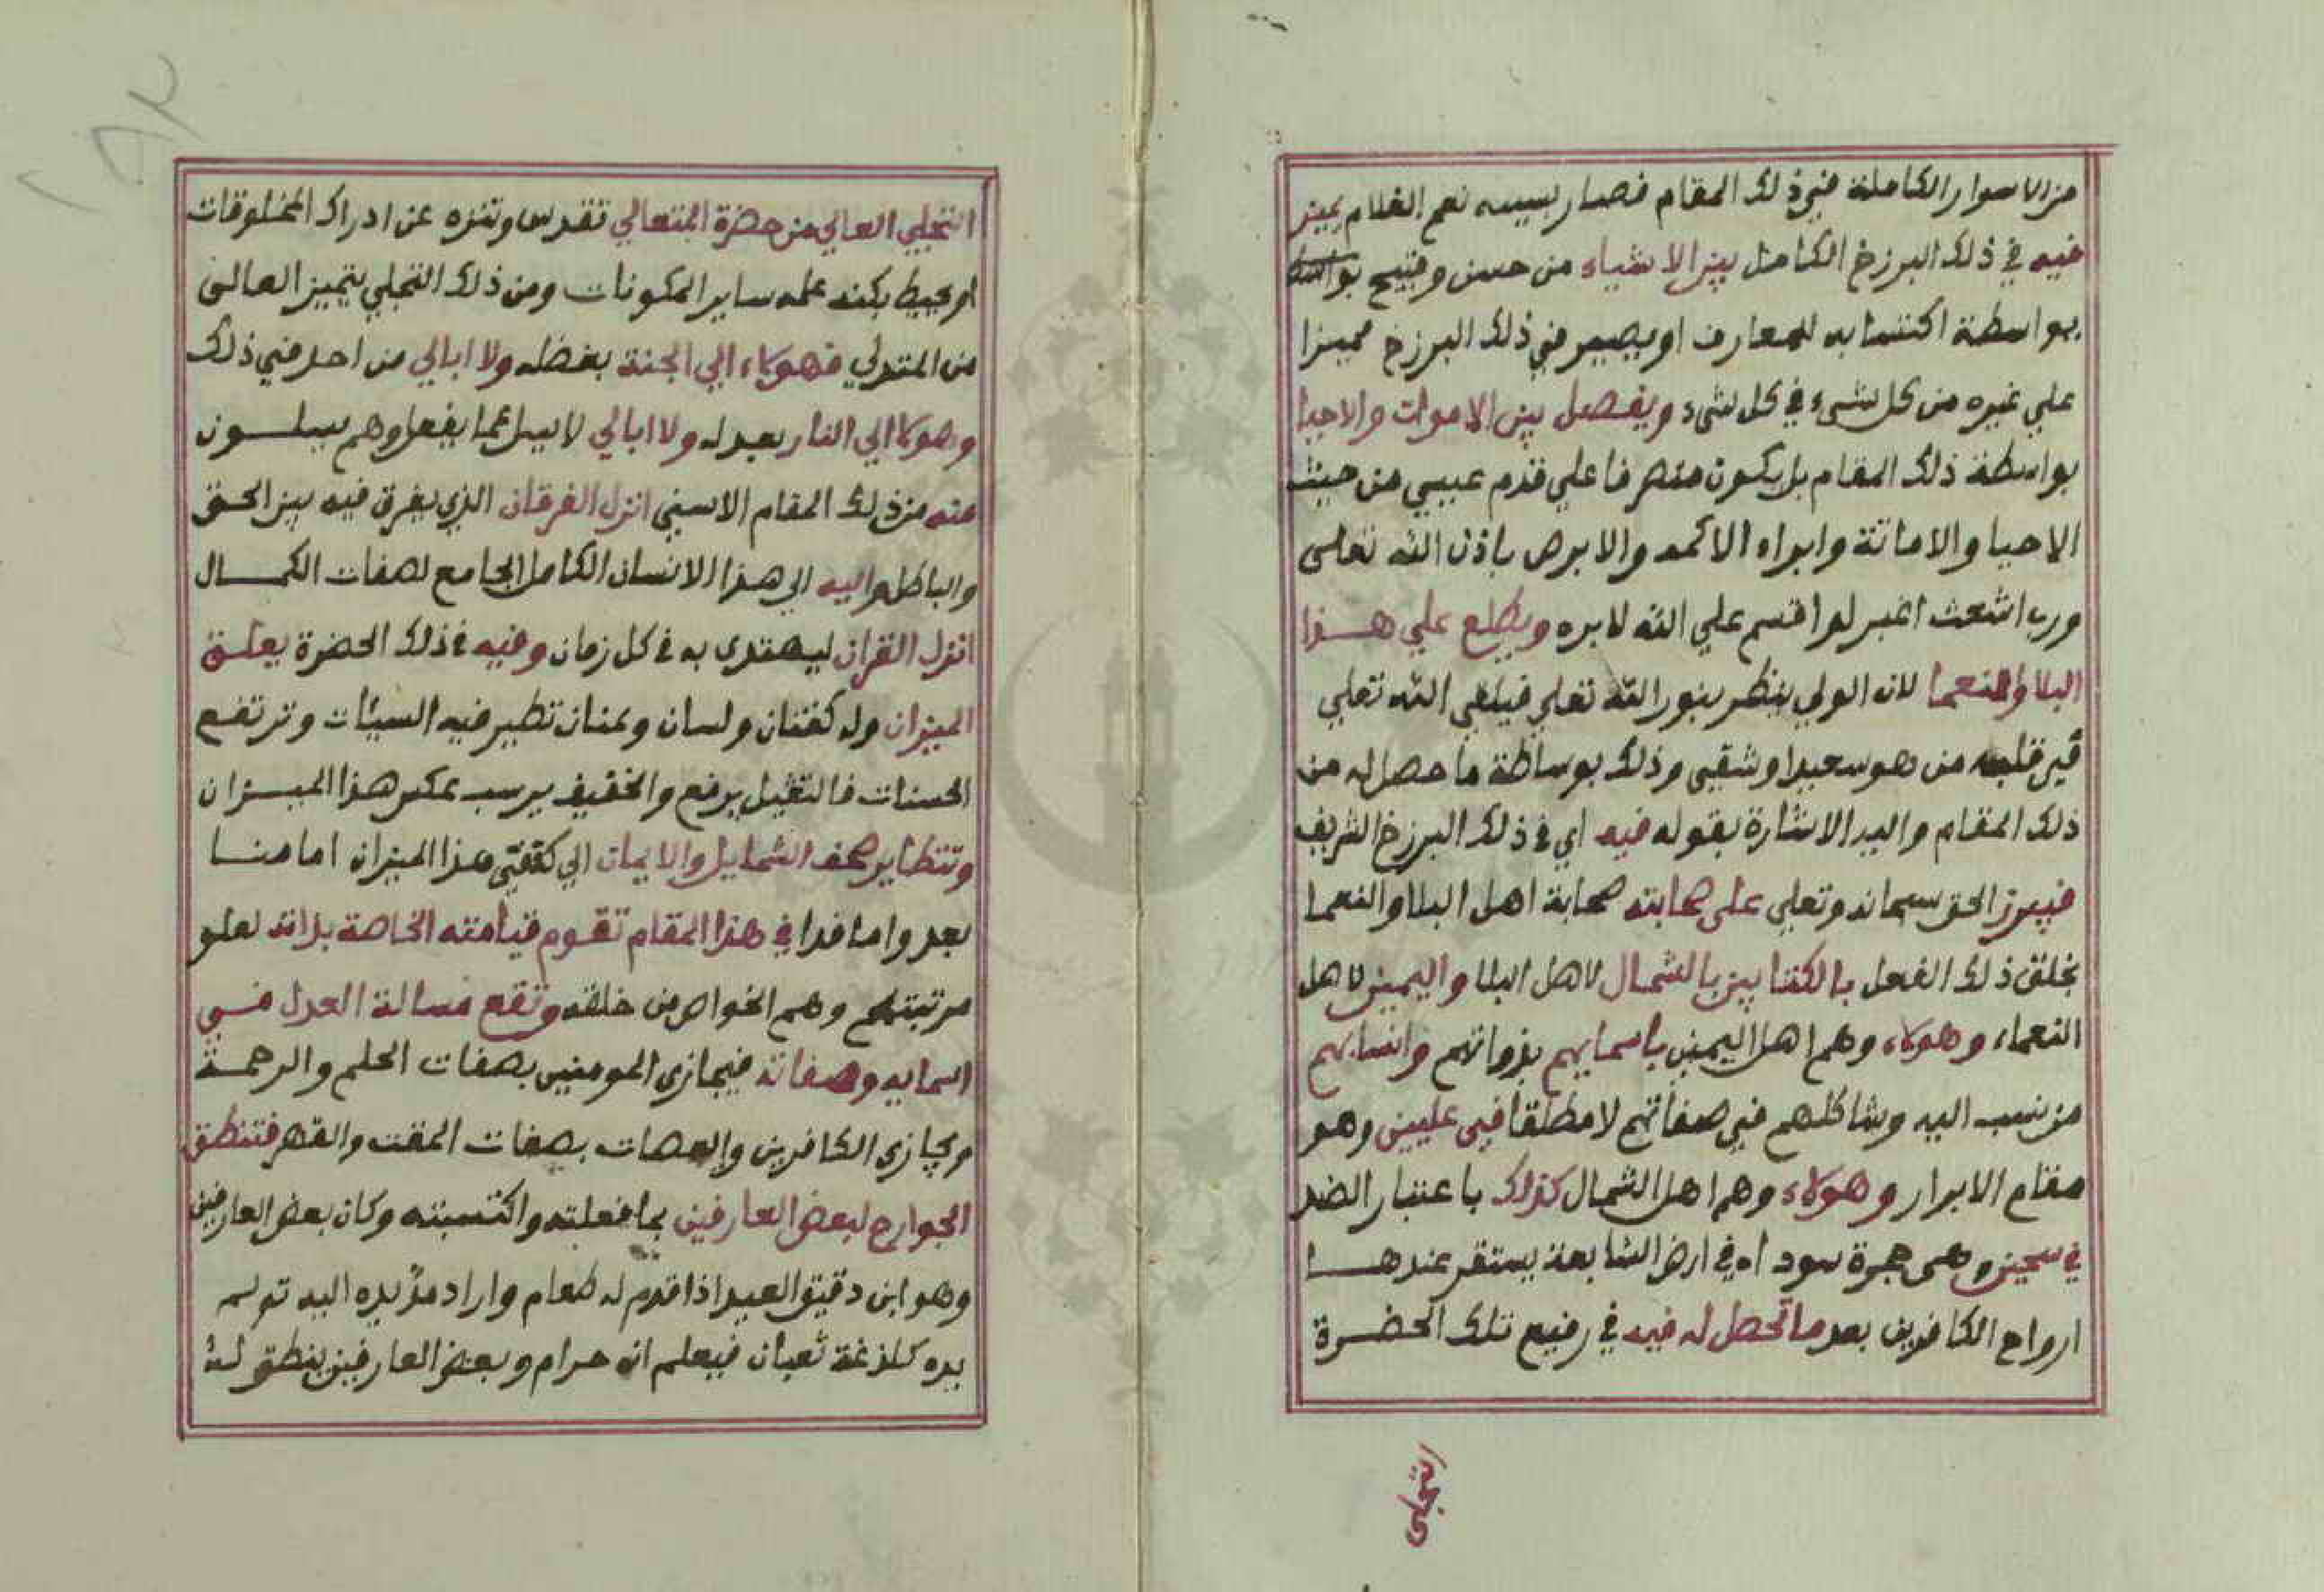 من الاسرار الكاملة في ذلك المقام فصار بسببه نعم الغلام يميز
فيه في ذلك البرزخ الكامل بين الاشياء من حسن وقبيح
بواسطة اكتسابه للمعارف او يصير في ذلك البرزخ مميزا
علي غيره من كل شيء في كل شيء ويفصل بين الاموات والاحيا
بواسطة ذلك المقام بل يكون متصرفا علي قدم عيسي من حيث
الاحيا والاماتة وابراء الاكمه والابرص باذن الله تعالى
ورب اشعث اغبر لو اقسم علي الله لابره ويطلع علي هذا
البلا والنعما لان الولي ينظر بنور الله تعلي فيلقي الله تعلي
في قلبه من هو سعيد او شقي وذلك بوساطة ما حصل له من
ذلك المقام واليه الاشارة بقوله فيه اي في ذلك البرزخ الشريف
فيبرز الحق سبحانه وتعلي على صحابته صحابة اهل البلا والنعما
بخلق ذلك الفعل بالكتابين بالشمال لاهل البلا واليمين لاهل
النعماء وهولاء وهم اهل اليمين باسمايهم بذواتهم وانسابهم
من نسب اليه وشاكلهم في صفاتهم لا مطلقا في عليين وهو
مقام الابرار وهولاء وهم اهل الشمال كذلك باعتبار الضد
في سجين وهى حجرة سوداء في ارض السابعة يستقر عندها
ارواح الكافرين بعد ما تحصل له فيه في رفيع تلك الحضرة
التجلى
التجلي العالي من حضرة المتعالي تقدس وتنزه عن ادراك المخلوقات
او يحيط بكنه علمه ساير المكونات ومن ذلك التجلي يتميز العالى
من المتدلي فهولاء الي الجنة بفضله ولا ابالي من احد في ذلك
وهولا الي النار بعدله ولا ابالي لا يسل عما يفعل وهم يسلون
عنه من ذلك المقام الاسني انزل الفرقان الذي يفرق فيه بين الحق
والباطل واليه الى هذا الانسان الكامل الجامع لصفات الكمال
انزل القران ليهتدى به في كل زمان وفيه في ذلك الحضرة يعلق
الميزان وله كفتان ولسان وعنان تطير فيه السيئات وترتفع
الحسنات فالثقيل يرفع والخفيف يرسب عكس هذا الميزان
وتتطاير صحف الشمايل والايمان الي كفتي هذا الميزان اما منا
بعد واما فدا في هذا المقام تقوم قيامته الخاصة بذاته لعلو
مرتبتهم وهم الخواص من خلقه وتقع مسالة العدل في
اسمايه وصفاته فيجازى المومنين بصفات الحلم والرحمة
ويجازى الكافرين والعصات بصفات المقت والقهر فتنطق
الجوارح لبعض العارفين بما فعلته واكتسبته وكان بعض العارفين
وهو ابن دقيق العيد اذا قدم له طعام واراد مد يده اليه تولمه
يده كلذغة ثعبان فيعلم انه حرام وبعض العارفين ينطق له